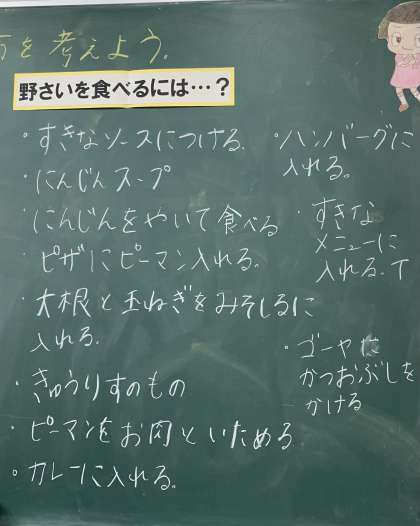 を考えよう。
野さいを食べるには…？
・すきなソースにつける。
・にんじんスープ
・にんじんをやいて食べる
・ピザにピーマン入れる。
・大根と玉ねぎをみそしるに
入れる。
・きゅうりすのもの
・ピーマンをお肉といためる
・カレーに入れる。
・ハンバーグに
入れる。
・すきな
メニューに
入れる。T
・ゴーヤは
かつおぶしを
かける